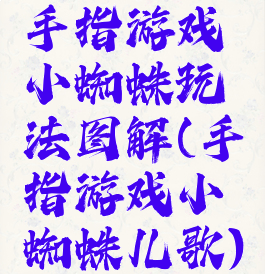 手指游戏
小蜘蛛玩
法图解(手
指游戏小
蜘蛛儿歌)